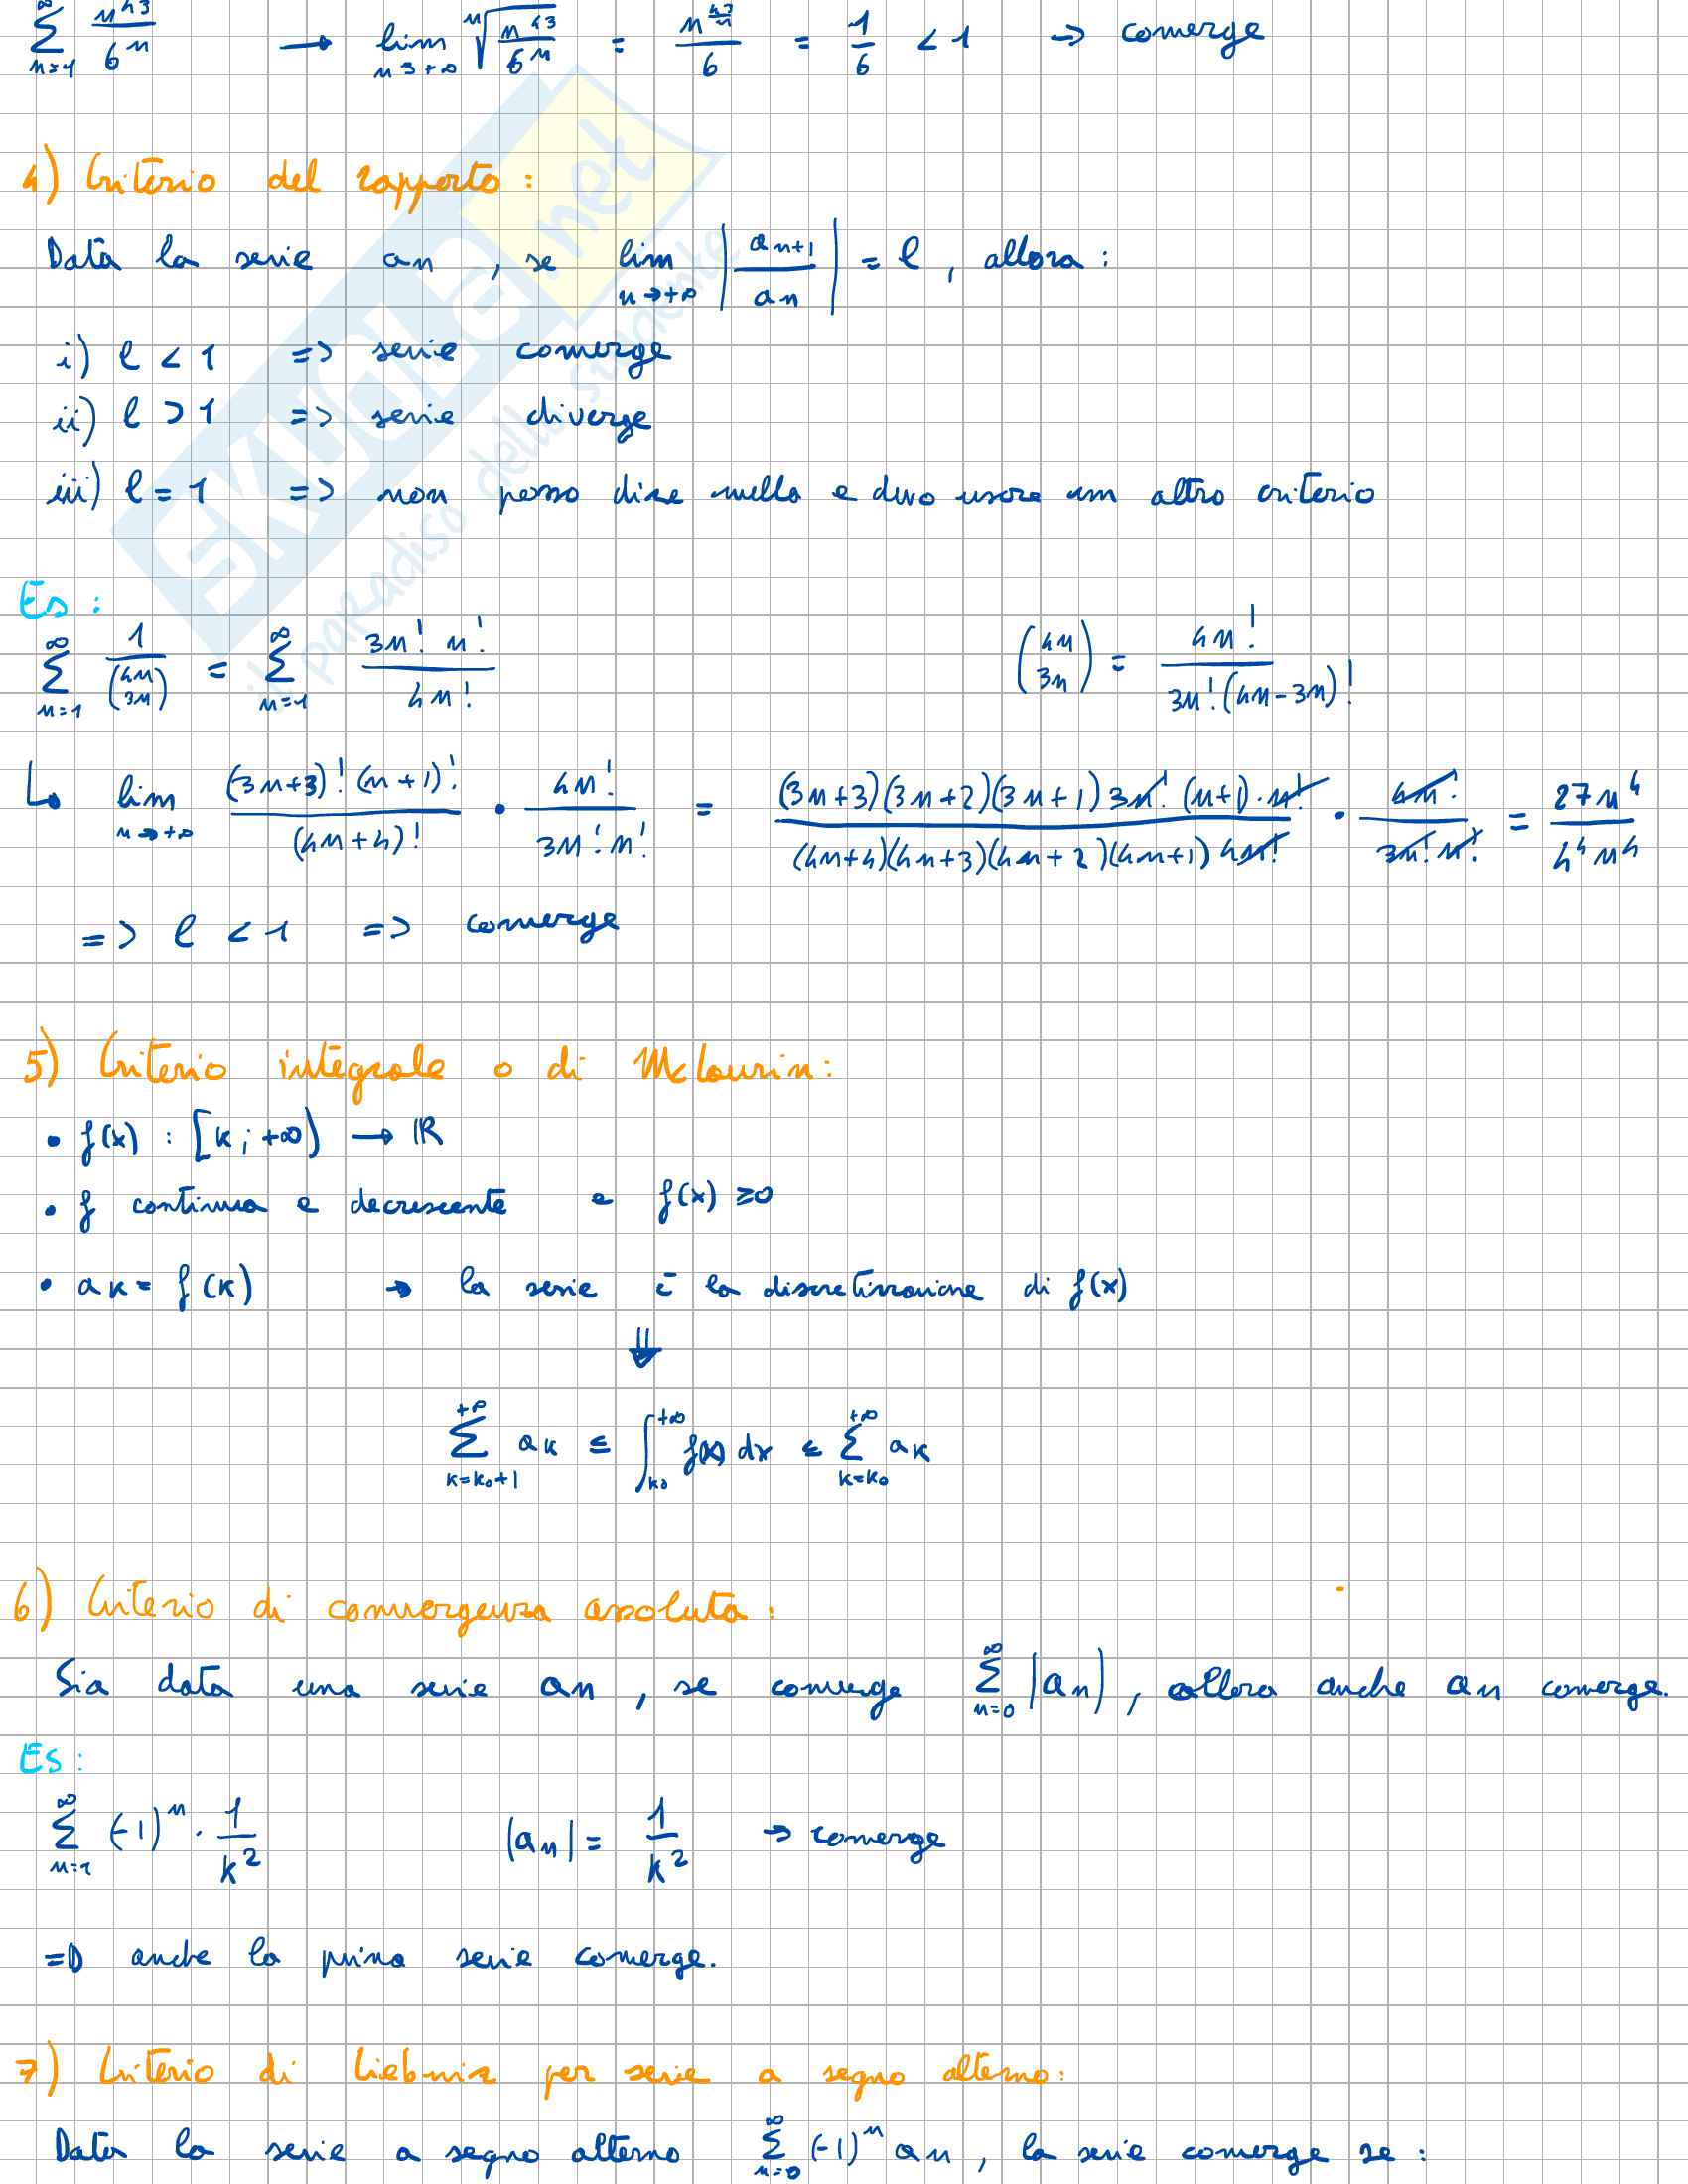 ∑_{n=1}^{∞} n^{43}/6^n → lim_{n→+∞} ⁿ√(n^{43}/6^n) = n^{43/n}/6 = 1/6 < 1 → converge
4) Criterio del rapporto:
Data la serie an , se lim_{n→+∞} |a_{n+1}/a_n| = l , allora:
i) l < 1 => serie converge
ii) l > 1 => serie diverge
iii) l = 1 => non posso dire nulla e devo usare un altro criterio
Es:
∑_{n=1}^{∞} 1/(4n 3n) = ∑_{n=1}^{∞} 3n! n!/4n! (4n 3n) = 4n!/3n!(4n-3n)!
↳ lim_{n→+∞} (3n+3)!(n+1)!/(4n+4)! · 4n!/3n!n! = (3n+3)(3n+2)(3n+1)3n!(n+1)·n!/(4n+4)(4n+3)(4n+2)(4n+1)4n! · 4n!/3n!n! = 27n^4/4^4n^4
=> l < 1 => converge
5) Criterio integrale o di McLaurin:
• f(x) : [k; +∞) → ℝ
• f continua e decrescente e f(x) ≥0
• ak = f(k) → la serie è la discretizzazione di f(x)
⇓
∑_{k=k₀+1}^{+∞} ak ≤ ∫_{k₀}^{+∞} f(x) dx ≤ ∑_{k=k₀}^{+∞} ak
6) Criterio di convergenza assoluta:
Sia data una serie an , se converge ∑_{n=0}^{∞} |an| , allora anche an converge.
ES:
∑_{n=1}^{∞} (-1)^n · 1/k² |an| = 1/k² → converge
=D anche la prima serie converge.
7) Criterio di Liebniz per serie a segno alterno:
Data la serie a segno alterno ∑_{n=0}^{∞} (-1)^n an , la serie converge se :
SKUOLA.net
il paradiso dello studente